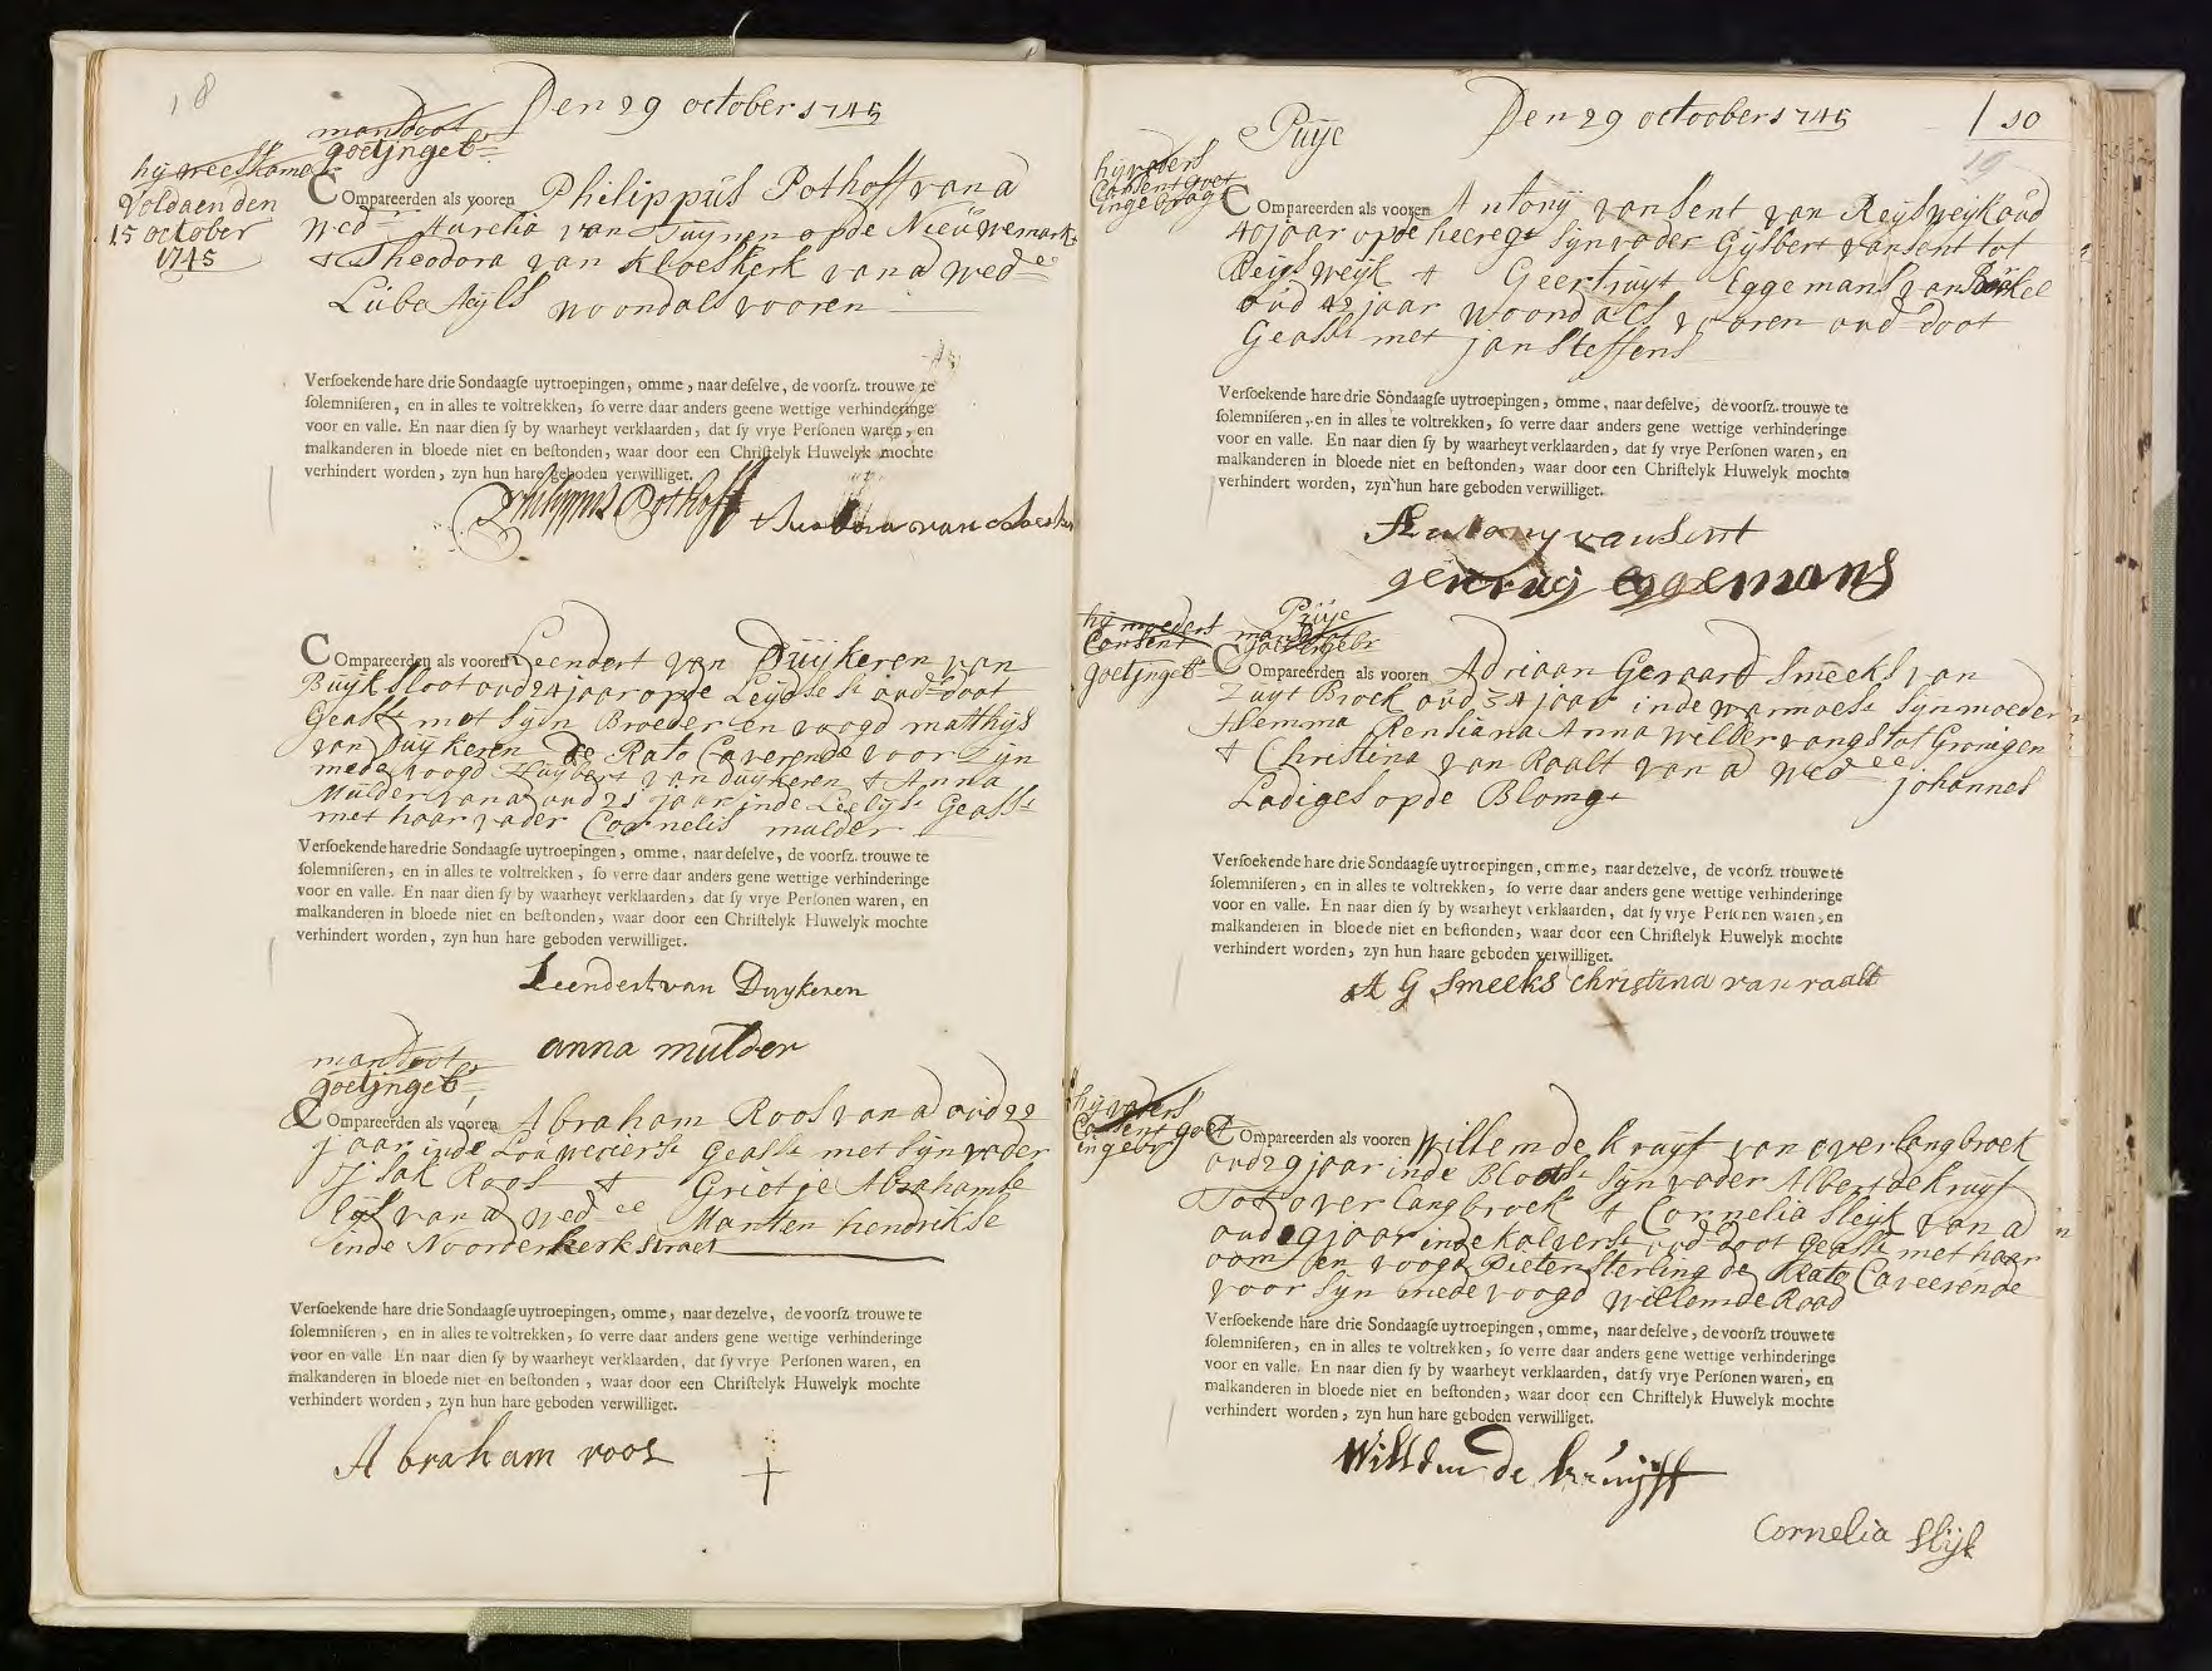 18
Den 29 october 1745
man doot
goetjngeb:
hij weeskamer
Voldaen den
15 october
1745
COmpareerden als vooren Philippus Pothoff van a
wed:r Aurelia van Tuynen op de Nieuwemark
& Theodora van Kloeskerk van a wed:ee
Lube Stijls woond als vooren
Versoekende hare drie Sondaagse uytroepingen, omme, naar deselve, de voorsz. trouwe te
solemniseren, en in alles te voltrekken, so verre daar anders geene wettige verhinderinge
voor en valle. En naar dien sy by waarheyt verklaarden, dat sy vrye Personen waren, en
malkanderen in bloede niet en bestonden, waar door een Christelyk Huwelyk mochte
verhindert worden, zyn hun hare geboden verwilliget.
Philippus Pothoff
COmpareerden als vooren Leendert van Duijkeren van
Buijksloot oud 24 jaar op de Leydse st oud:s doot
Geasst met sijn Broeder en voogd matthijs
van Duijkeren de Rato Caverende voor Zijn
mede voogd Huijbert van duijkeren & Anna
Mulder van a oud 21 jaar inde Leelijst Geasst
met haar vader Cornelis mulder
Versoekende hare drie Sondaagse uytroepingen, omme, naar deselve, de voorsz. trouwe te
solemniseren, en in alles te voltrekken, so verre daar anders gene wettige verhinderinge
voor en valle. En naar dien sy by waarheyt verklaarden, dat sy vrye Personen waren, en
malkanderen in bloede niet en bestonden, waar door een Christelyk Huwelyk mochte
verhindert worden, zyn hun hare geboden verwilliget.
Leendert van Duykeren
anna mulder
man doot
goetjngeb:
COmpareerden als vooren Abraham Roos van a oud 22
jaar inde Louweriers:t Geasst met sijn vader
Isak Roos & Grietje Abrahamse
lijs van a wed:ee Marten hendrikse
inde Noorderkerkstraet
Versoekende hare drie Sondaagse uytroepingen, omme, naar dezelve, de voorsz trouwe te
solemniseren, en in alles te voltrekken, so verre daar anders gene wettige verhinderinge
voor en valle En naar dien sy by waarheyt verklaarden, dat sy vrye Personen waren, en
malkanderen in bloede niet en bestonden, waar door een Christelyk Huwelyk mochte
verhindert worden, zyn hun hare geboden verwilliget.
Abraham roos
Puije
Den 29 octoober 1745
10
19
hij vaders
Consent goet
ingebrag
COmpareerden als vooren Antonij van Sent van Reijsweijk oud
40 jaar op de heeregt sijn vader Gijsbert van Sent tot
Reijsweijk & Geertruijt Eggemans van
oud 42 jaar woond als vooren oud:s doot
Geasst met jan Steffens
Versoekende hare drie Sondaagse uytroepingen, omme, naar deselve, de voorsz. trouwe te
solemniseren, en in alles te voltrekken, so verre daar anders gene wettige verhinderinge
voor en valle. En naar dien sy by waarheyt verklaarden, dat sy vrye Personen waren, en
malkanderen in bloede niet en bestonden, waar door een Christelyk Huwelyk mochte
verhindert worden, zyn hun hare geboden verwilliget.
Antony van Sent
gertruij eggemans
hij moeders
Consent
goetjngeb:
Puije
man doot
goetjngebr
COmpareerden als vooren Adriaan Geraard Smeeks van
Zuyt Broek oud 34 jaar inde warmoest sijn moeder
Hemma Rensiana Anna wildervangs tot Gronigen
& Christina van Raalt van a wed:ee johannes
Ladiges op de Blomgt
Versoekende hare drie Sondaagse uytroepingen, omme, naar dezelve, de voorsz. trouwe te
solemniseren, en in alles te voltrekken, so verre daar anders gene wettige verhinderinge
voor en valle. En naar dien sy by waarheyt verklaarden, dat sy vrye Personen waren, en
malkanderen in bloede niet en bestonden, waar door een Christelyk Huwelyk mochte
verhindert worden, zyn hun haare geboden verwilliget.
A G Smeeks Christina van raalt
hij vaders
Consent goet
ingebr
COmpareerden als vooren Willem de kruijf van overlangbroek
oud 29 jaar inde Bloetst sijn vader Albert de kruijf
Tot overlangbroek & Cornelia Slijk van a
oud 29 jaar inde kalverst oud:s doot Geasst met haar
oom en voogd Pieter Sterling de Rato Caveerende
voor sijn mede voogd willem de Raad
Versoekende hare drie Sondaagse uytroepingen, omme, naar deselve, de voorsz trouwe te
solemniseren, en in alles te voltrekken, so verre daar anders gene wettige verhinderinge
voor en valle. En naar dien sy by waarheyt verklaarden, dat sy vrye Personen waren, en
malkanderen in bloede niet en bestonden, waar door een Christelyk Huwelyk mochte
verhindert worden, zyn hun hare geboden verwilliget.
Willem de kruijff
Cornelia Slijk